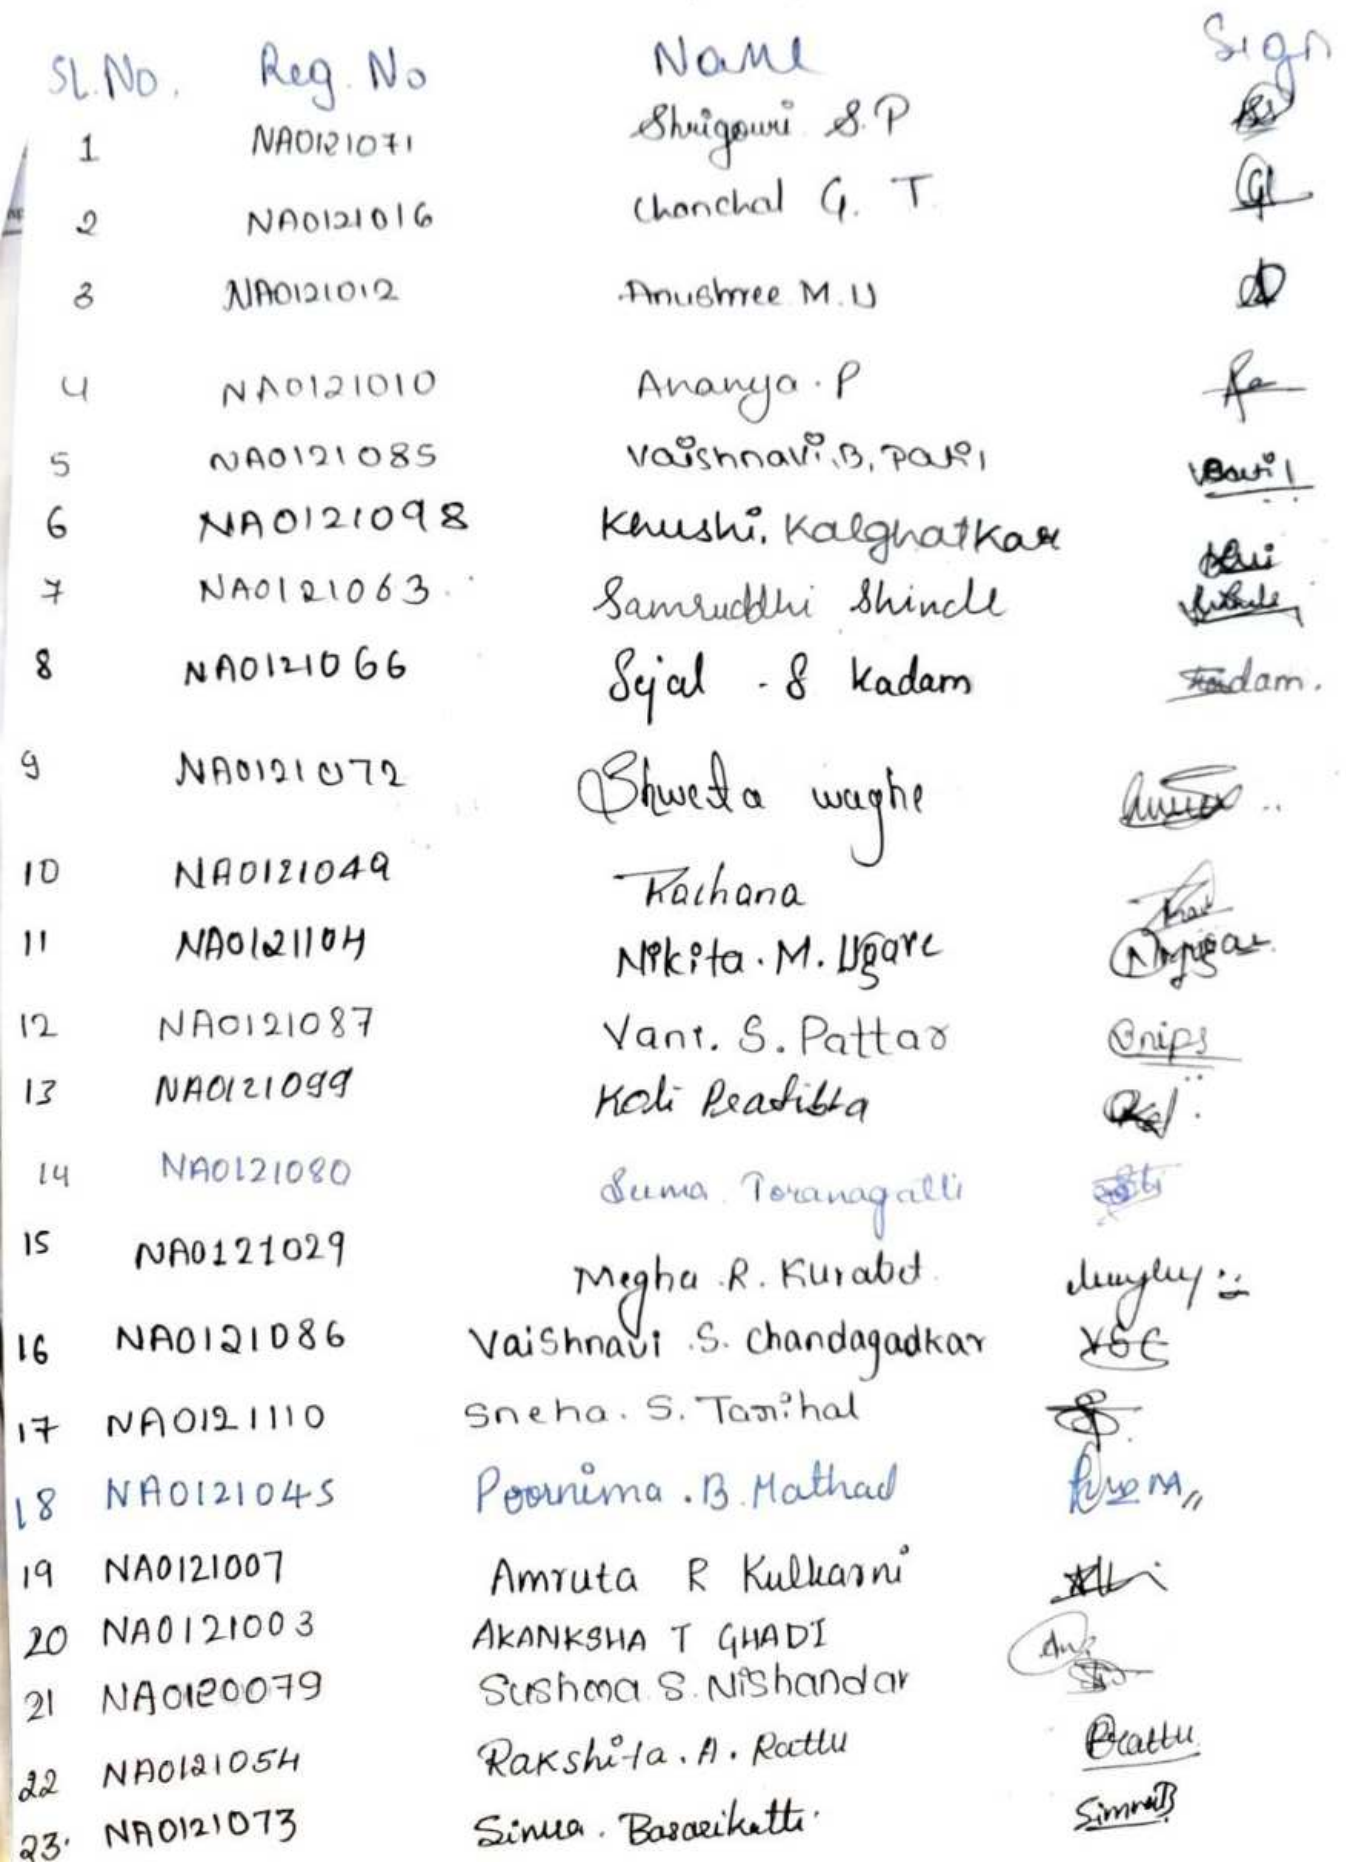 SL.No. Reg. No Name Sign
1 NA0121071 Shrigouri S.P
2 NA0121016 Chanchal G. T.
3 NA0121012 Anushree M.U
4 NA0121010 Ananya.P
5 NA0121085 Vaishnavi.B.Patil
6 NA0121098 Khushi. Kalghatkar
7 NA0121063 Samruddhi Shinde
8 NA0121066 Sejal .S Kadam Kadam.
9 NA0121072 Shweta waghe
10 NA0121049 Rachana
11 NA0121104 Nikita.M.Ugare
12 NA0121087 Vani. S. Pattar
13 NA0121099 Koli Pratibha
14 NA0121080 Suma Toranagatti
15 NA0121029 Megha .R. Kurabet
16 NA0121086 Vaishnavi .S. Chandagadkar VSC
17 NA0121110 Sneha. S. Tarihal
18 NA0121045 Poornima .B.Mathad
19 NA0121007 Amruta R Kulkarni
20 NA0121003 AKANKSHA T GHADI
21 NA0120079 Sushma S. Nishandar
22 NA0121054 Rakshita.A. Rattu Rattu
23. NA0121073 Basarikatti.